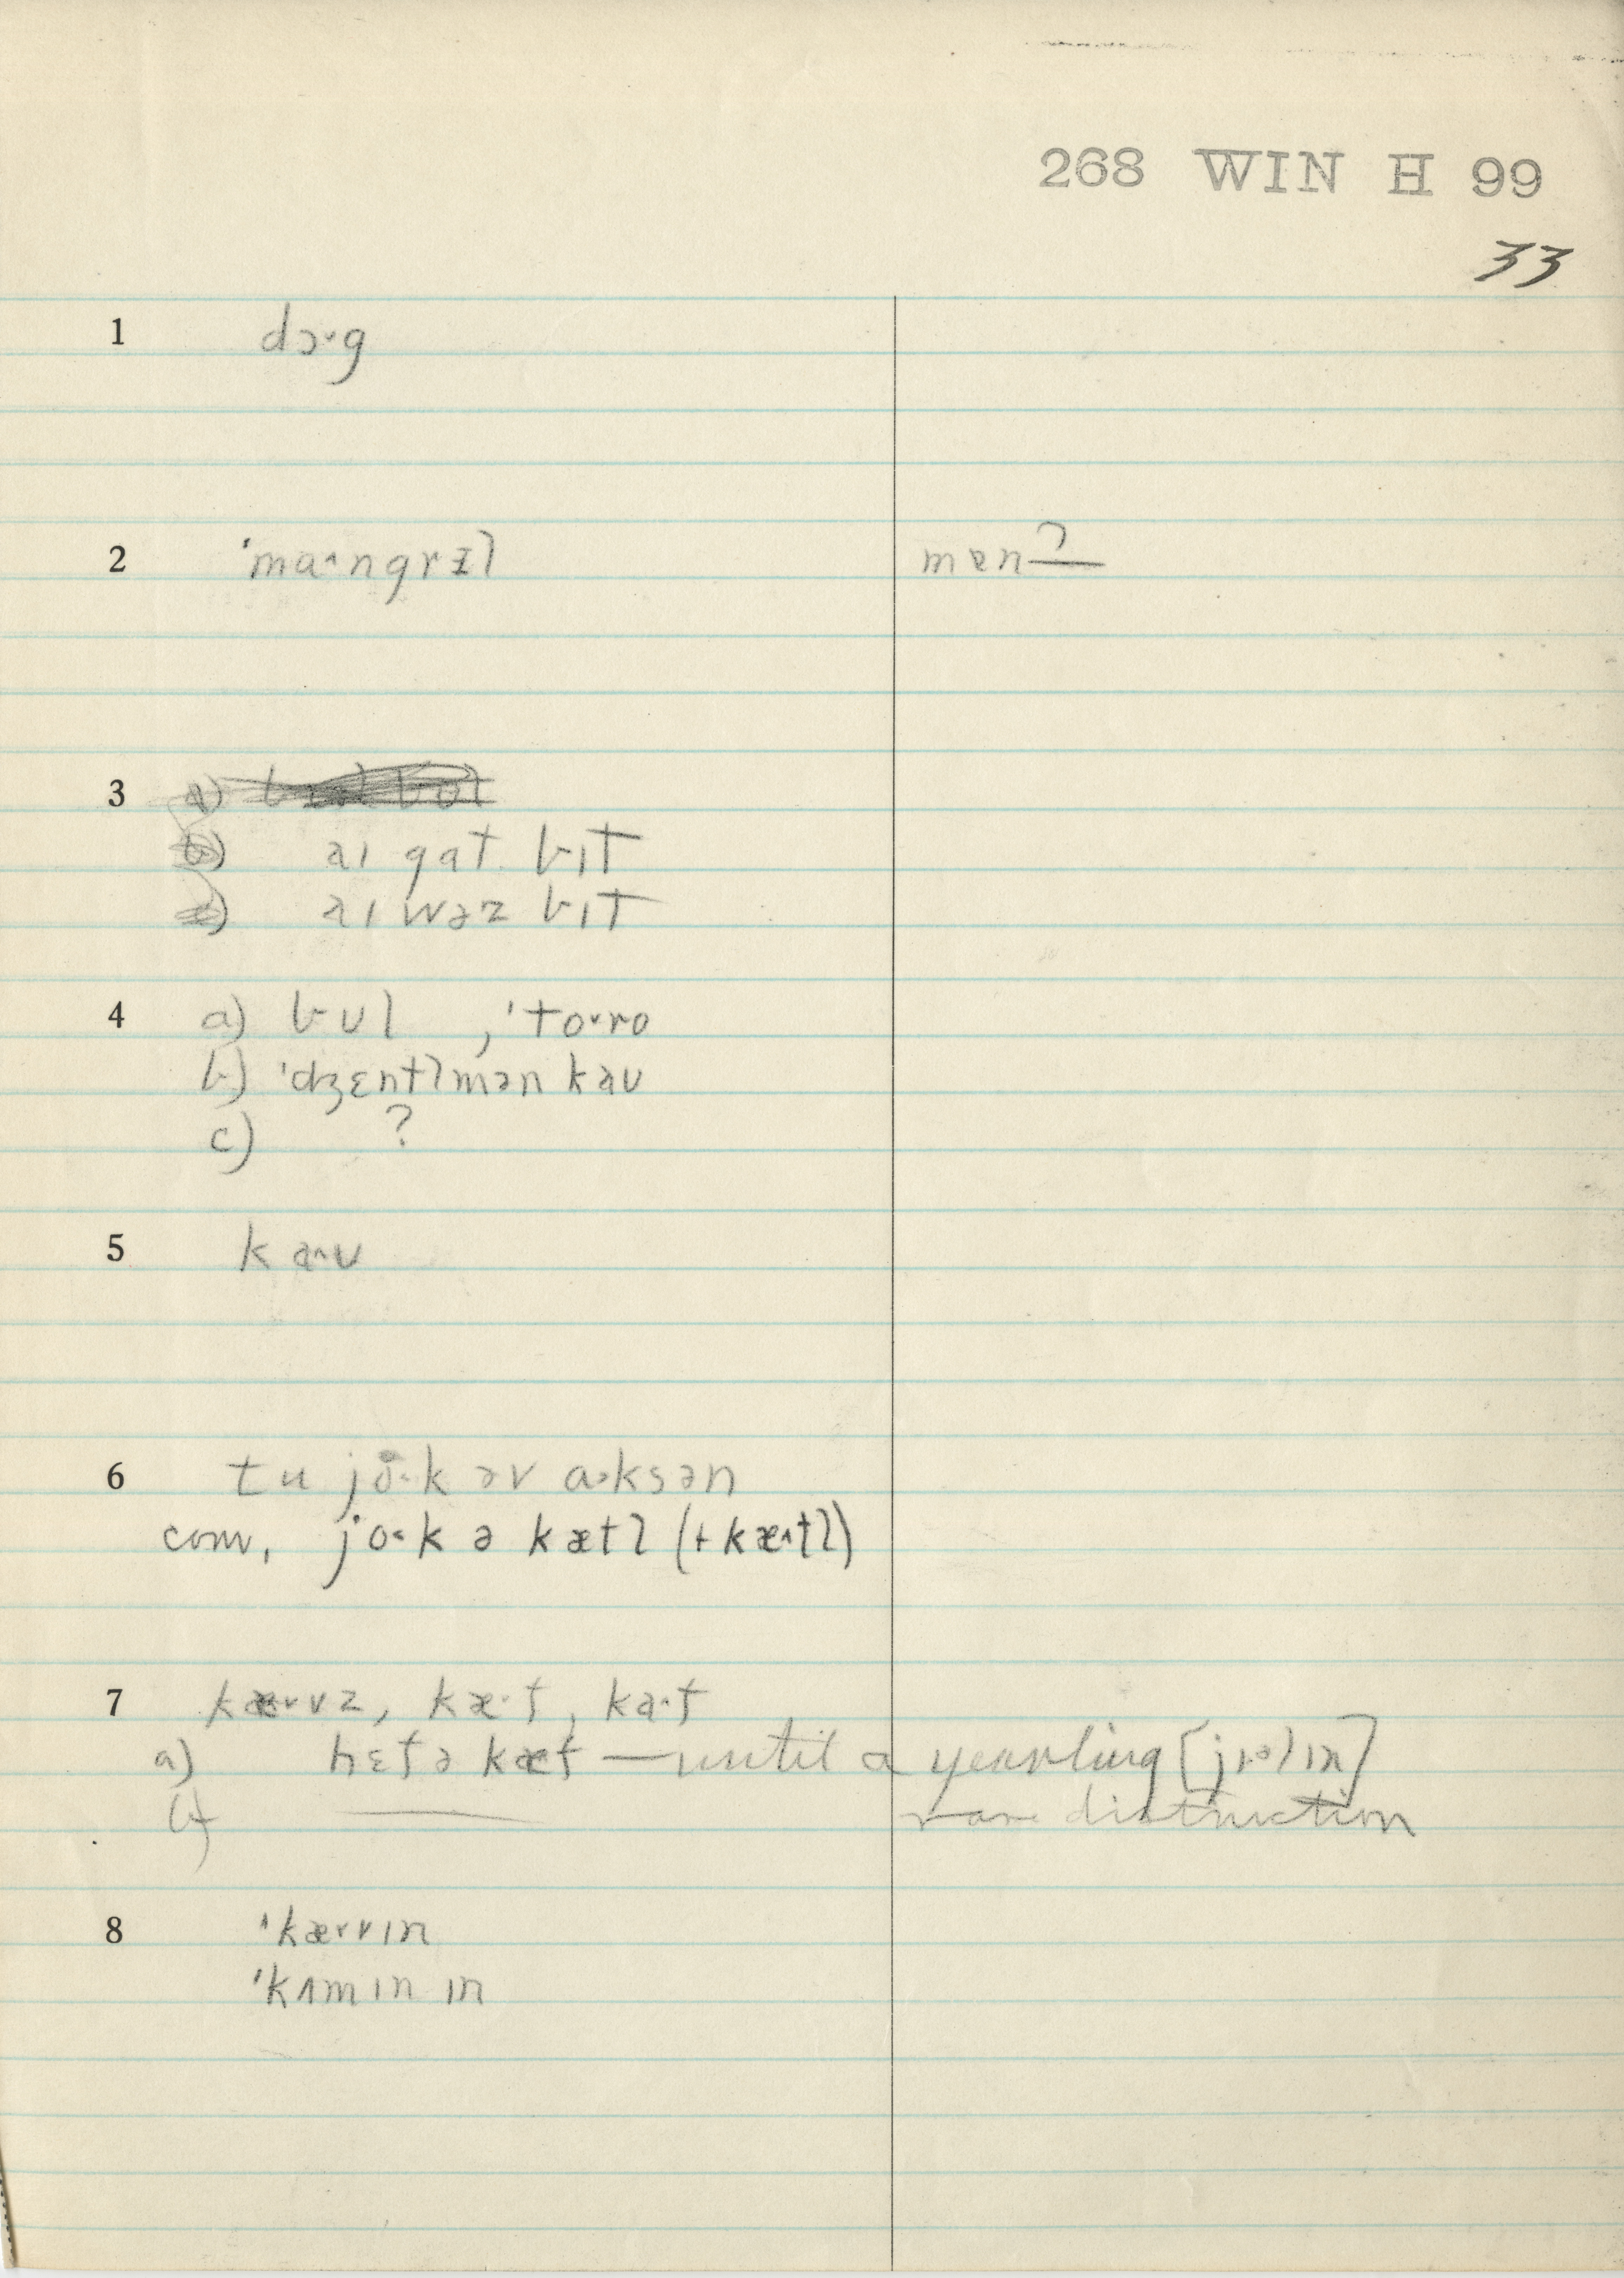 268 WIN H 99
33
1 dɔ˞g
2 ˈmaˑngrɪl mɐn?
3 a)
b) aɪ gat bɪt
aɪ wəz bɪt
4 a) bʊl , ˈtoˑro
b) ˈdʒɛntlmən kaʊ
c) ?
5 kaˑʊ
6 tu joˑk əv aˑksən
com. joˑk ə kætl (+ kæˑtl)
7 kæˑvz, kæˑf, kaˑf
a) hɛfə kæf — until a yearling [jɪəlɪn]
b) — rare distinction
8 ˈkævɪn
ˈkʌmɪn ɪn